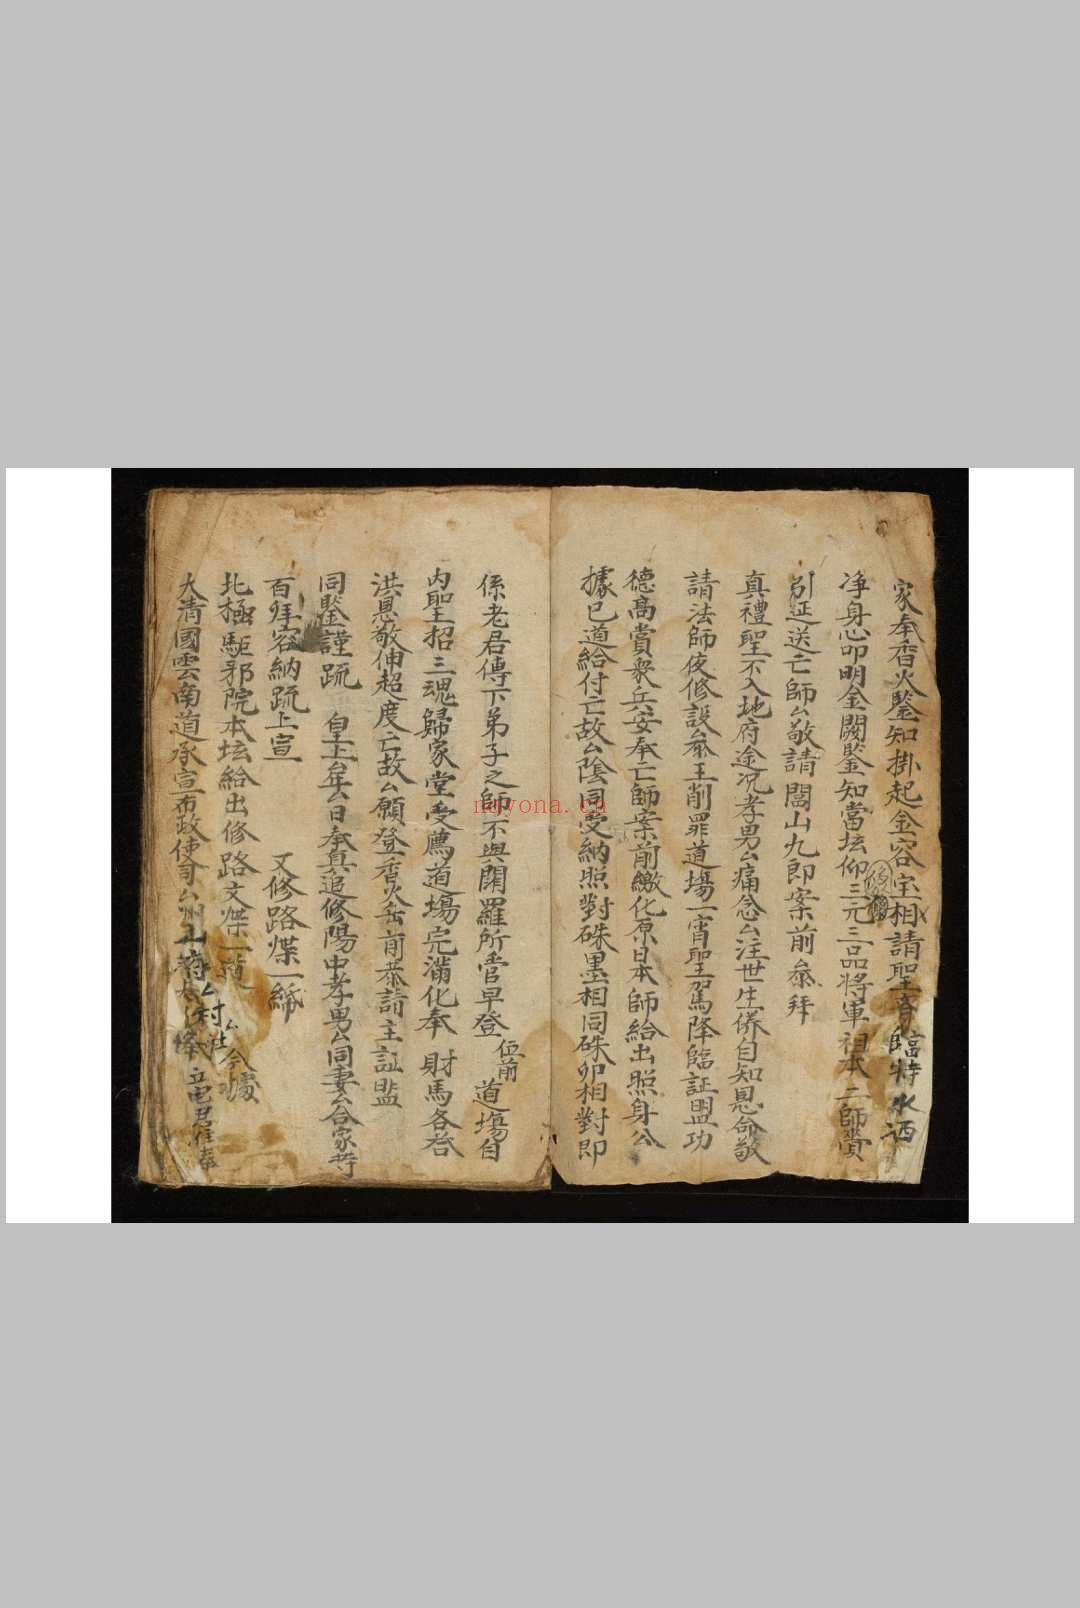 家奉香火鑒知掛起金容宝相請聖賁臨特水洒
净身心叩明金闕鑒知當坛仰三元三品將軍祖本二師賞
引延送亡師厶敬請閭山九郎案前叅拜
真禮聖不入地府途况孝男厶痛念厶注世生侢自知恩命敬
請法師夜修設叅王削罪道場一宵聖駕降臨証盟功
德高賞衆兵安奉亡師案前繳化原日本師給出照身公
據已道給付亡故厶陰同受納照對硃墨相同硃卯相對即
係老君傳下弟子之師不與閻羅所管早登位前道塲自
内聖招三魂歸家堂受薦道塲完滿化奉財馬各答
洪恩敬伸超度亡故厶願登香火岳前恭請主証盟
同鑒謹疏 皇上厶年厶日奉真追修陽中孝男厶同妻厶合家等
百拜容納疏上宣
又修路牒一紙
北極駈邪院本坛給出修路文牒一道今據
大清國雲南道承宣布政使司厶州厶府厶村立宅居住奉
nayona.cn